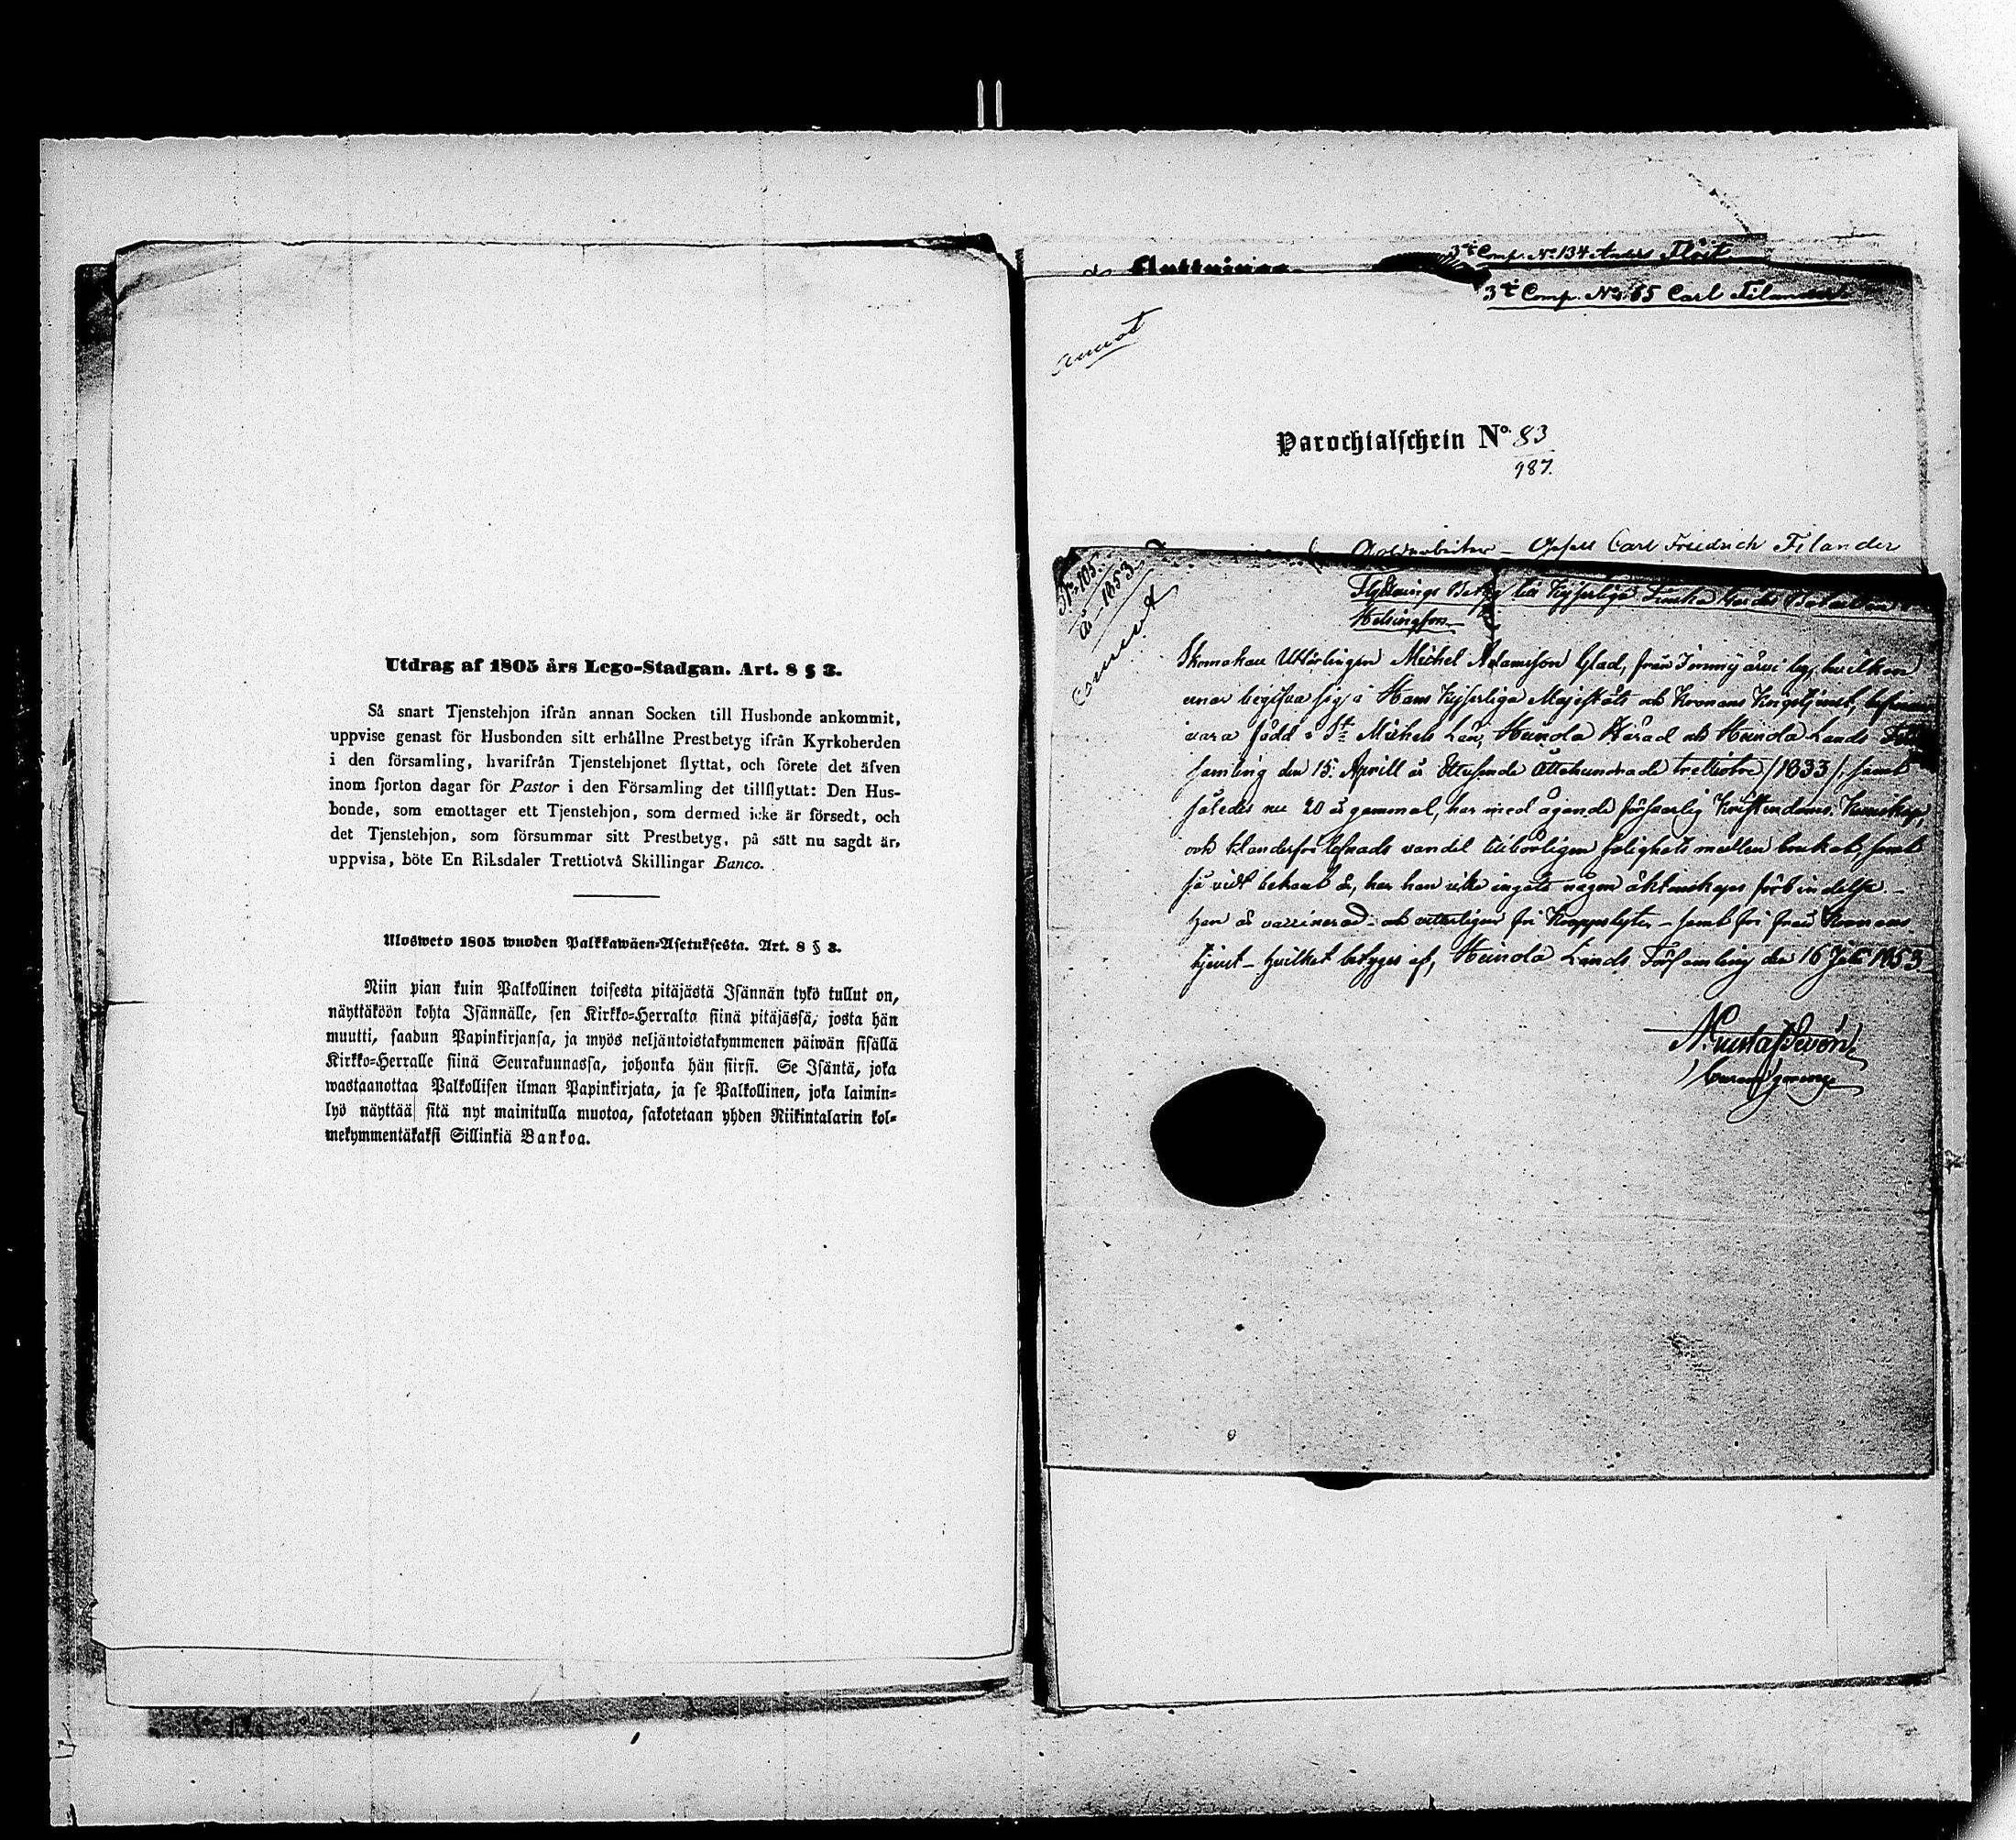 Utdrag af 1805 års Lego-Stadgan. Art. 8 § 3.
Så snart Tjenstehjon ifrån annan Socken till Husbonde ankommit,
uppvise genast för Husbonden sitt erhållne Prestbetyg ifrån Kyrkoherden
i den församling, hvarifrån Tjenstehjonet flyttat, och förete det äfven
inom fjorton dagar för Pastor i den Församling det tillflyttat: Den Hus-
bonde, som emottager ett Tjenstehjon, som dermed icke är försedt, och
det Tjenstehjon, som försummar sitt Prestbetyg, på sätt nu sagdt är,
uppvisa, böte En Riksdaler Trettiotvå Skillingar Banco.
Ulosweto 1805 wuoden Palkkawäen-Asetuksesta. Art. 8 § 3.
Niin pian kuin Palkollinen toisesta pitäjästä Isännän tykö tullut on,
näyttäköön kohta Isännälle, sen Kirkko-Herralta siinä pitäjässä, josta hän
muutti, saadun Papinkirjansa, ja myös neljäntoistakymmenen päiwän sisällä
Kirkko-Herralle siinä Seurakunnassa, johonka hän siirsi. Se Isäntä, joka
wastaanottaa Palkollisen ilman Papinkirjata, ja se Palkollinen, joka laimin-
lyö näyttää sitä nyt mainitulla muotoa, sakotetaan yhden Riikintalarin kol-
mekymmentäkaksi Sillinkiä Bankoa.
3e Comp. No 134 Anders Flöit
3e Comp. No 65 Carl Filander
annot
Parochialschein No. 83
987.
Goldarbeiter - Gesell Carl Friedrich Filander
No 105
1853
Flyttnings Betyg till Kejserliga Finska Gardes Bataillon
Helsingfors
Skomakare Michel Adamsson Glad, från by, hvilken
ernar begifva sig i Hans Kejserliga Majestäts och Kronans Krigstjenst, befinnes
vara född i St Michels Län, Heinola Härad och Heinola Lands För-
samling den 15 Aprill år Ettusende Åttahundrade trettiotre /1833/, samt
således nu 20 år gammal, har med ägande försvarlig Kristendoms Kunskap,
och klanderfri lefnads vandel tilbörligen salighets medlen brukat, samt
så vidt bekant är, har han icke ingått någon äktenskaps förbindelse -
Han är vaccinerad och fri Kroppslyter - samt fri från Kronans
tjenst - Hvilket betygas af, Heinola Lands Församling den 16 1853